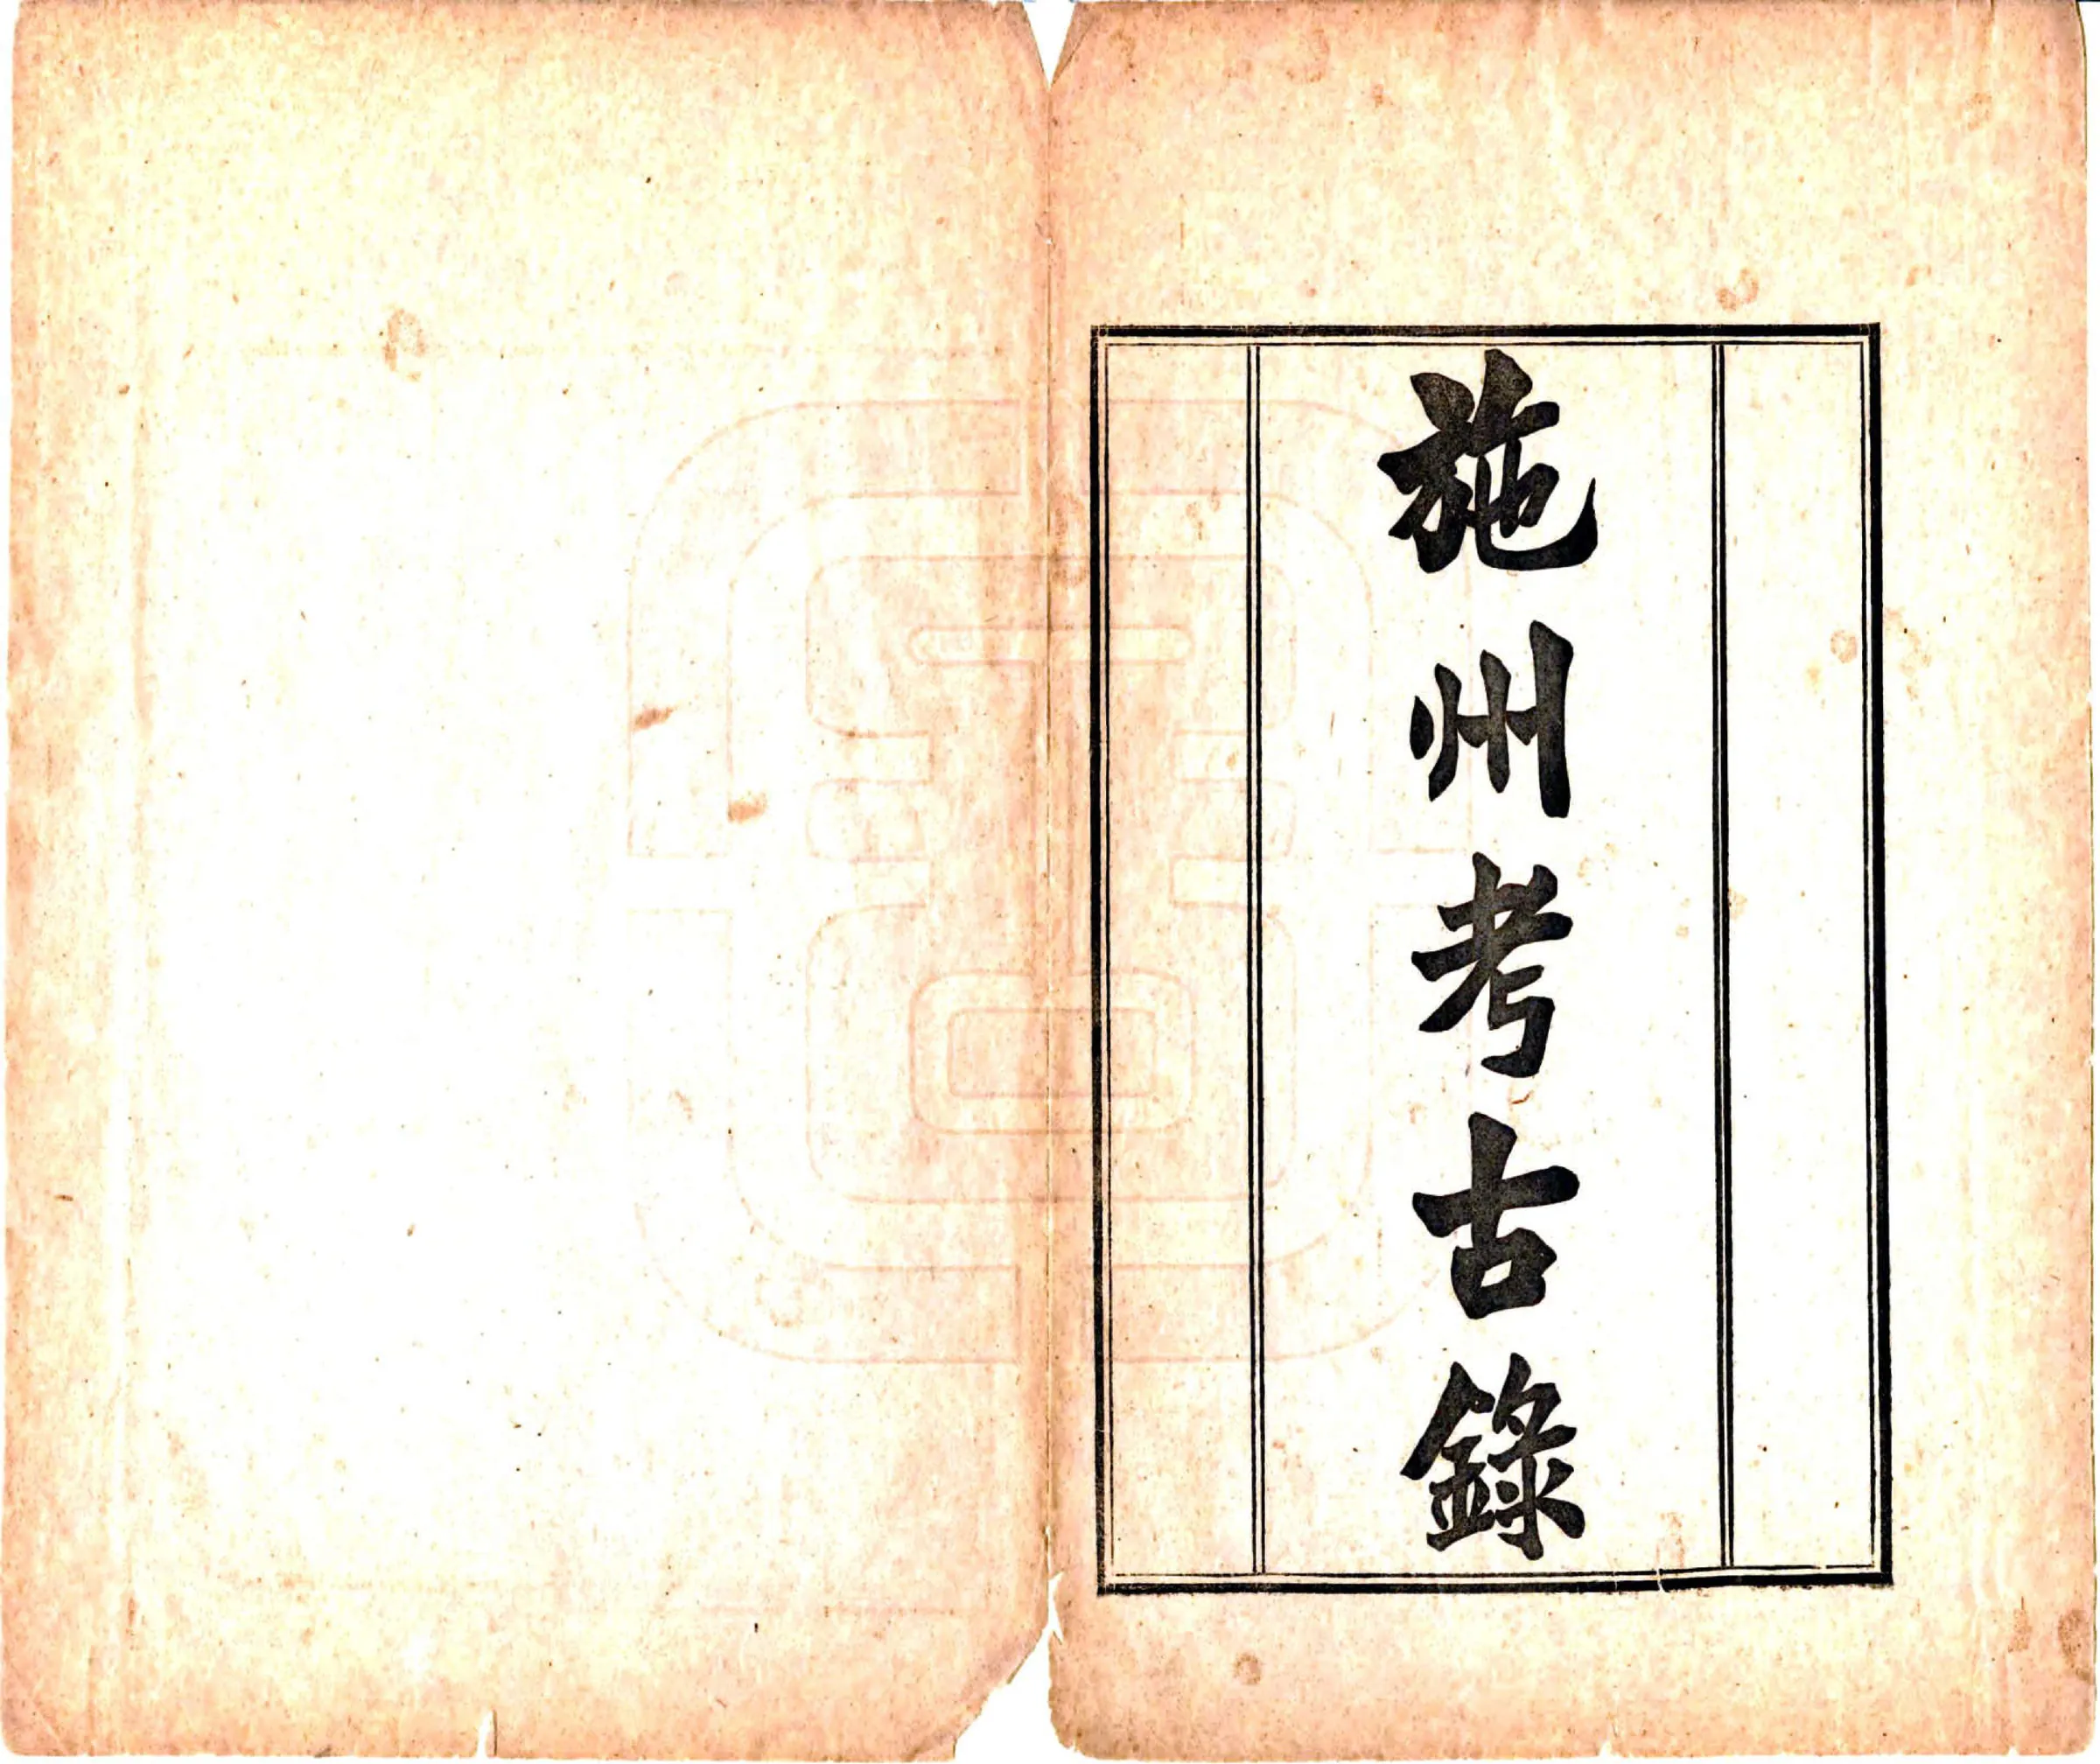 施州考古錄